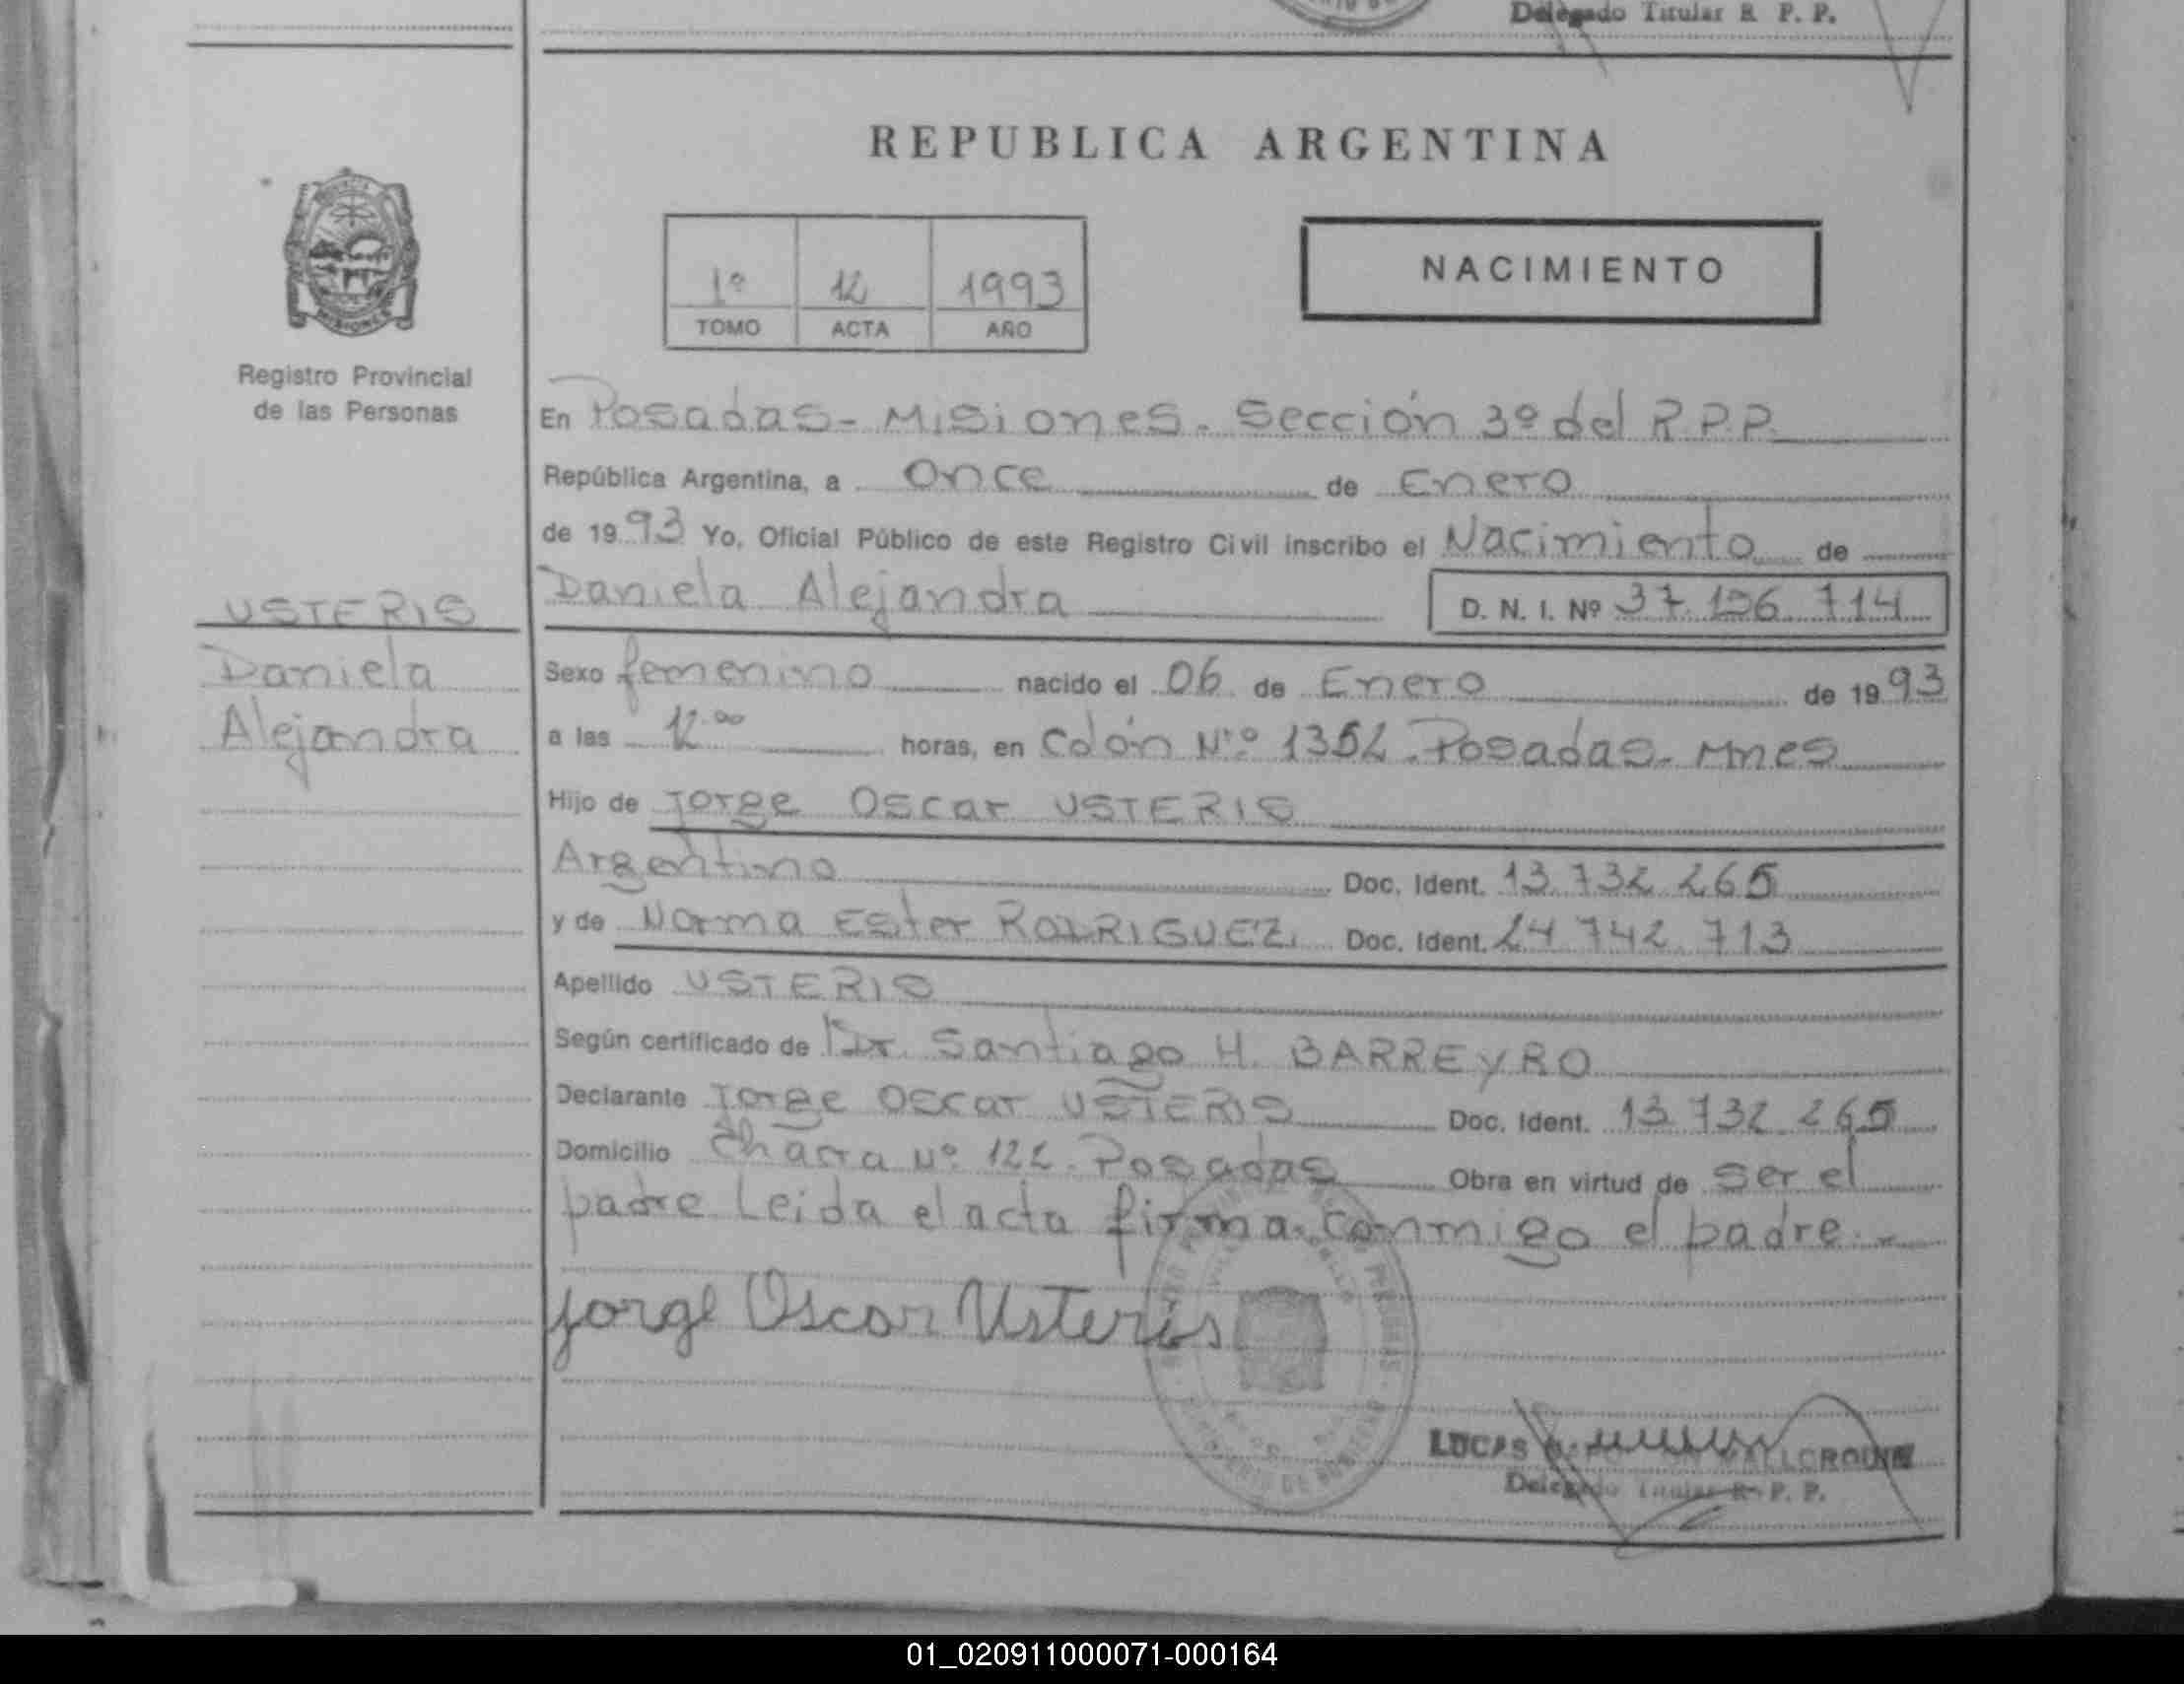 Delegado Titular R. P. P.
REPUBLICA ARGENTINA
MISIONES
Registro Provincial
de las Personas
1º 12 1993
TOMO ACTA AÑO
NACIMIENTO
En Posadas - Misiones. Sección 3º del R.P.P.
República Argentina, a Once de Enero
de 1993 Yo, Oficial Público de este Registro Civil inscribo el Nacimiento de
USTERIS
Daniela
Alejandra
Daniela Alejandra D. N. I. Nº 37.156.714
Sexo femenino nacido el 06 de Enero de 1993
a las 12.00 horas, en Colón Nº 1352. Posadas - Mnes
Hijo de Jorge Oscar USTERIS
Argentino Doc. Ident. 13.732.265
y de Norma Ester RODRIGUEZ. Doc. Ident. 24 742 713
Apellido USTERIS
Según certificado de Dr. Santiago H. BARREYRO
Declarante Jorge Oscar USTERIS Doc. Ident. 13 732 265
Domicilio Chacra Nº 122. Posadas Obra en virtud de ser el
padre Leida el acta firma conmigo el padre.-
Jorge Oscar Usteris
LUCAS
Delegado Titular R. P. P.
01_020911000071-000164